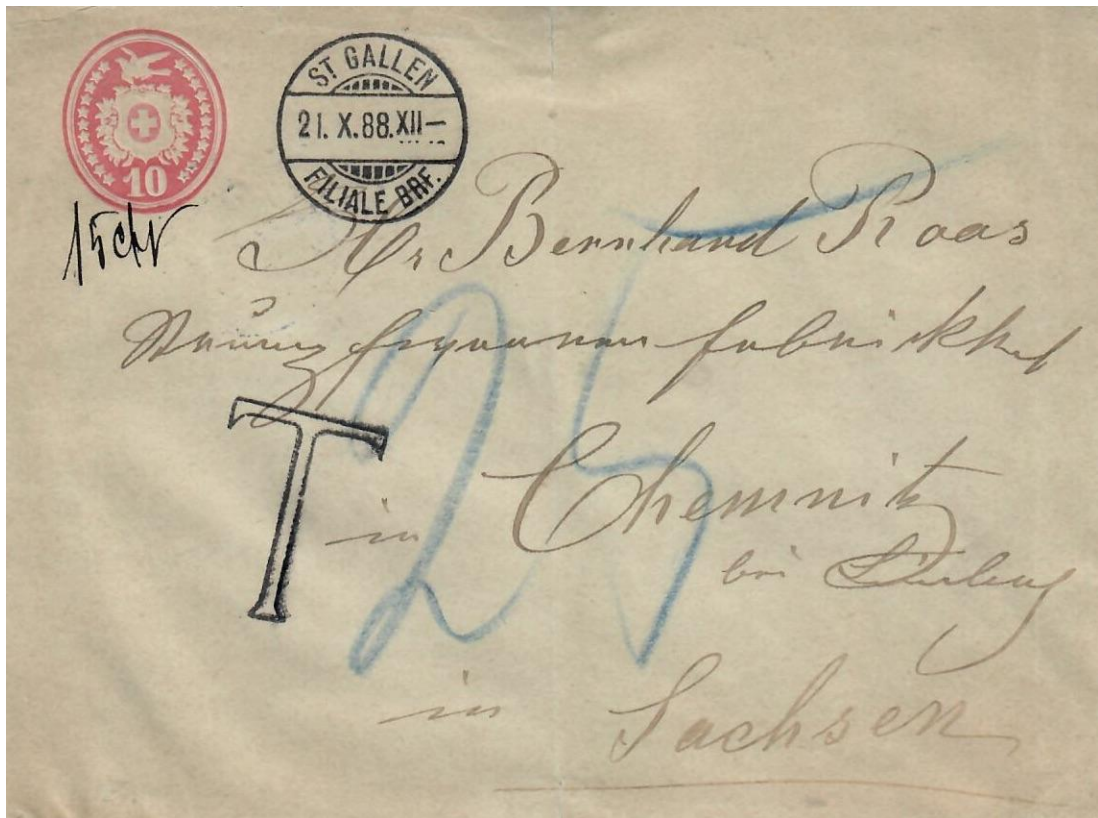 10
ST GALLEN
21. X. 88. XII—
FILIALE BRF.
15 cts
Hr Bernhard Roas
T
25
in Chemnitz
bei
in Sachsen